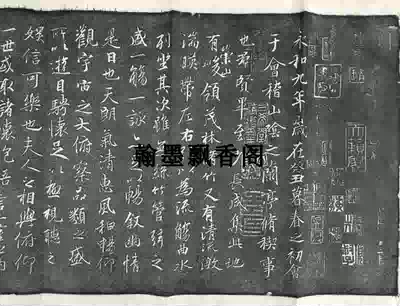 永和九年歲在癸丑暮春之初會
于會稽山陰之蘭亭脩稧事
也群賢畢至長咸集此地
有崇山峻領茂林脩竹又有清流激
湍暎帶左右以為流觴曲水
列坐其次雖無絲竹管弦之
盛一觴一詠以暢敘幽情
是日也天朗氣清惠風和暢仰
觀宇宙之大俯察品類之盛
所以遊目騁懷足以極視聽之
娛信可樂也夫人之相與俯仰
一世或取諸懷抱悟言一
翰墨飄香阁